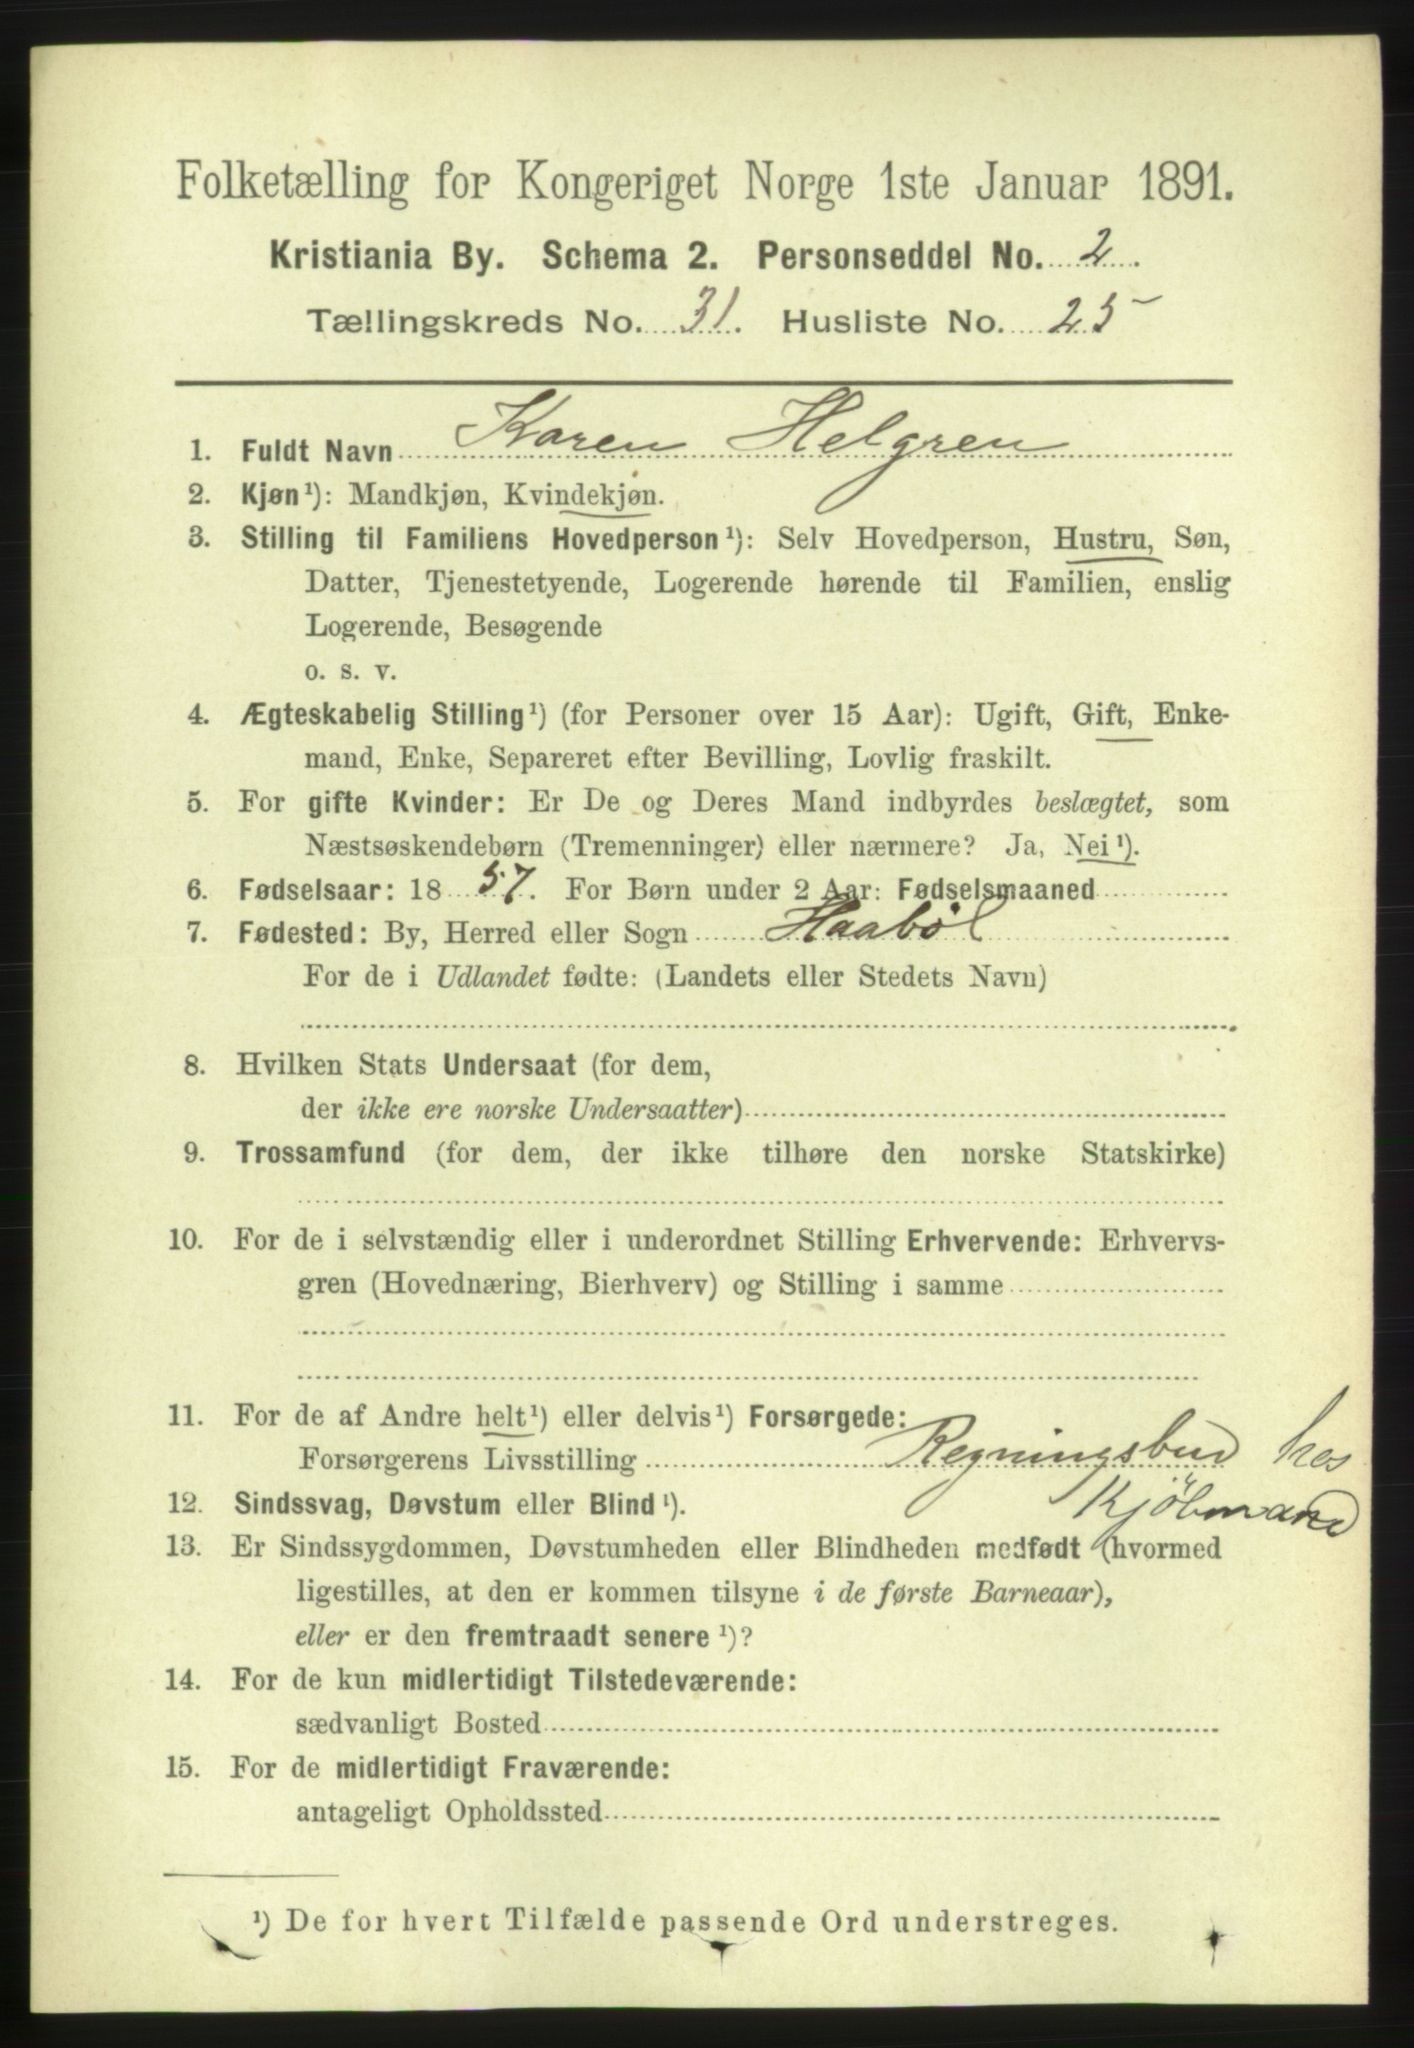 Folketælling for Kongeriget Norge 1ste Januar 1891.
Kristiania By. Schema 2. Personseddel No. 2.
Tællingskreds No. 31. Husliste No. 25
1. Fuldt Navn Karen Helgren
2. Kjøn¹): Mandkjøn, Kvindekjøn.
3. Stilling til Familiens Hovedperson¹): Selv Hovedperson, Hustru, Søn,
Datter, Tjenestetyende, Logerende hørende til Familien, enslig
Logerende, Besøgende
o. s. v.
4. Ægteskabelig Stilling¹) (for Personer over 15 Aar): Ugift, Gift, Enke-
mand, Enke, Separeret efter Bevilling, Lovlig fraskilt.
5. For gifte Kvinder: Er De og Deres Mand indbyrdes beslægtet, som
Næstsøskendebørn (Tremenninger) eller nærmere? Ja, Nei¹).
6. Fødselsaar: 1857. For Børn under 2 Aar: Fødselsmaaned
7. Fødested: By, Herred eller Sogn Haabøl
For de i Udlandet fødte: (Landets eller Stedets Navn)
8. Hvilken Stats Undersaat (for dem,
der ikke ere norske Undersaatter)
9. Trossamfund (for dem, der ikke tilhøre den norske Statskirke)
10. For de i selvstændig eller i underordnet Stilling Erhvervende: Erhvervs-
gren (Hovednæring, Bierhverv) og Stilling i samme
11. For de af Andre helt¹) eller delvis¹) Forsørgede:
Forsørgerens Livsstilling Regningsbud hos
Kjöbmand
12. Sindssvag, Døvstum eller Blind¹).
13. Er Sindssygdommen, Døvstumheden eller Blindheden medfødt (hvormed
ligestilles, at den er kommen tilsyne i de første Barneaar),
eller er den fremtraadt senere¹)?
14. For de kun midlertidigt Tilstedeværende:
sædvanligt Bosted
15. For de midlertidigt Fraværende:
antageligt Opholdssted
¹) De for hvert Tilfælde passende Ord understreges.